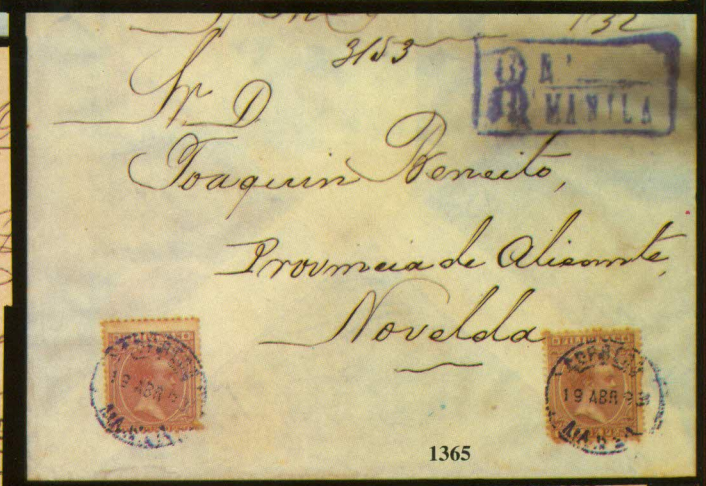 132
3153
R Nº
MANILA
Sr. D
Joaquin Beneito,
Provincia de Alicante,
Novelda
19 ABR
MANILA
19 ABR 9
MANILA
1365